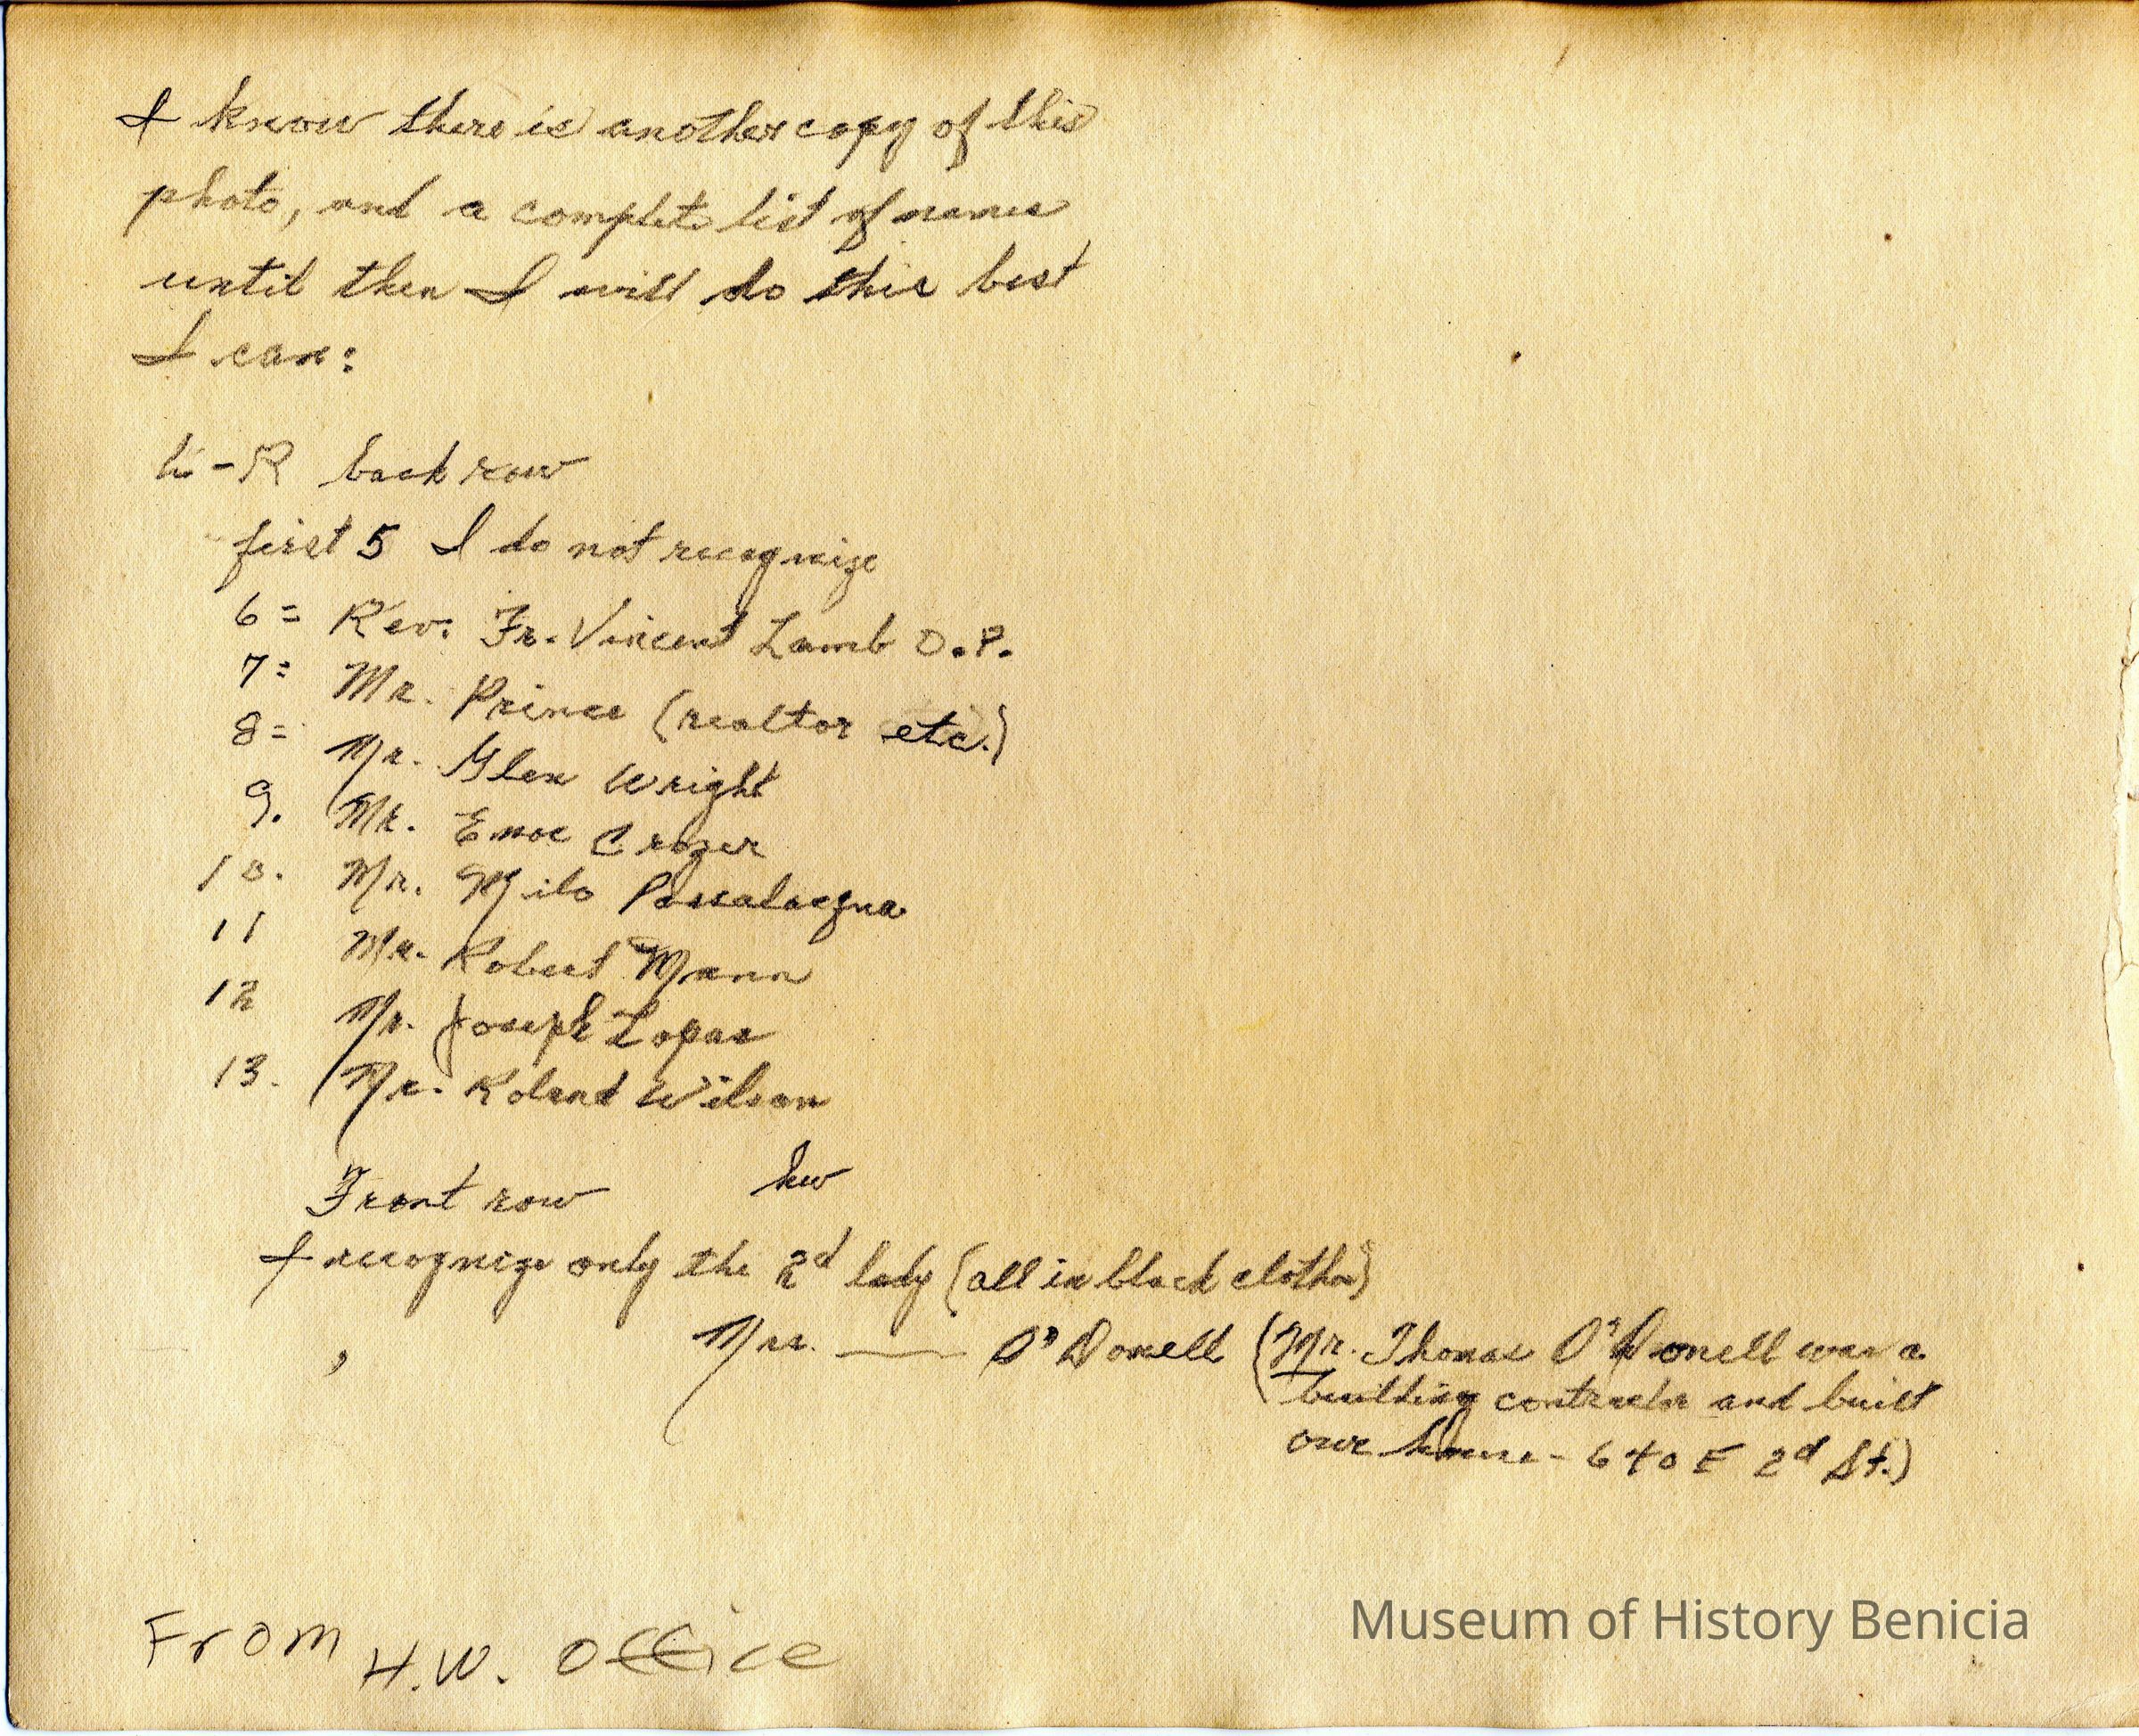 I know there is another copy of this
photo, and a complete list of names
until then I will do this best
I can:
L-R back row
first 5 I do not recognize
6= Rev. Fr. Vincent Lamb O.P.
7= Mr. Prince (realtor etc.)
8= Mr. Glen Wright
9. Mr. Enoc Crozer
10. Mr. Milo Passalacqua
11 Mr. Robert Mann
12 Mr. Joseph Lopas
13. Mr. Roland Wilson
Front row hw
I recognize only the 2d lady (all in black clothes)
Mrs. —— O'Donell (Mr. Thomas O'Donell was a
building contractor and built
our house - 640 E 2d St.)
From H.W. Office
Museum of History Benicia